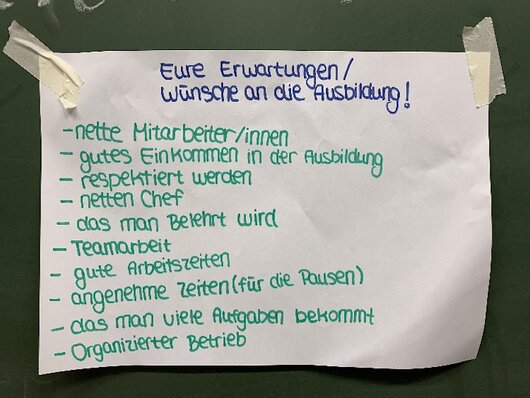 Eure Erwartungen/
Wünsche an die Ausbildung!
- nette Mitarbeiter/innen
- gutes Einkommen in der Ausbildung
- respektiert werden
- netten Chef
- das man Belehrt wird
- Teamarbeit
- gute Arbeitszeiten
- angenehme Zeiten (für die Pausen)
- das man viele Aufgaben bekommt
- Organizierter Betrieb